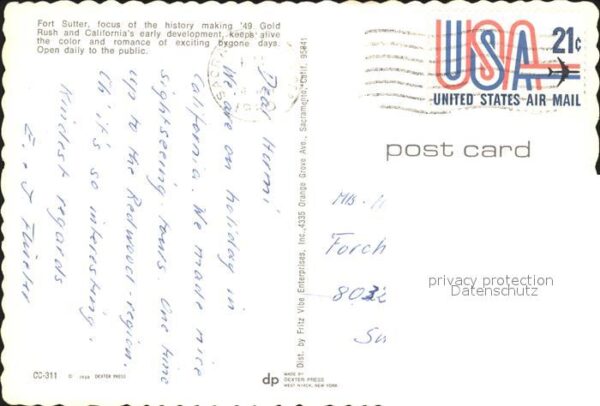 Fort Sutter, focus of the history making '49 Gold
Rush and California's early development, keeps alive
the color and romance of exciting bygone days.
Open daily to the public.
USA 21c
UNITED STATES AIR MAIL
post card
Dear Hermi
We are on holiday in
California. We made nice
sightseeing tours. One time
up to the Redwood-region.
Oh it's so interesting.
Kindest regards
E. + J.
Dist. by Fritz Vibe Enterprises, Inc., 4335 Orange Grove Ave., Sacramento, Calif. 95841
Forch
8032
privacy protection
Datenschutz
CC-311 © DEXTER PRESS
dp
MADE BY
DEXTER PRESS
WEST NYACK, NEW YORK